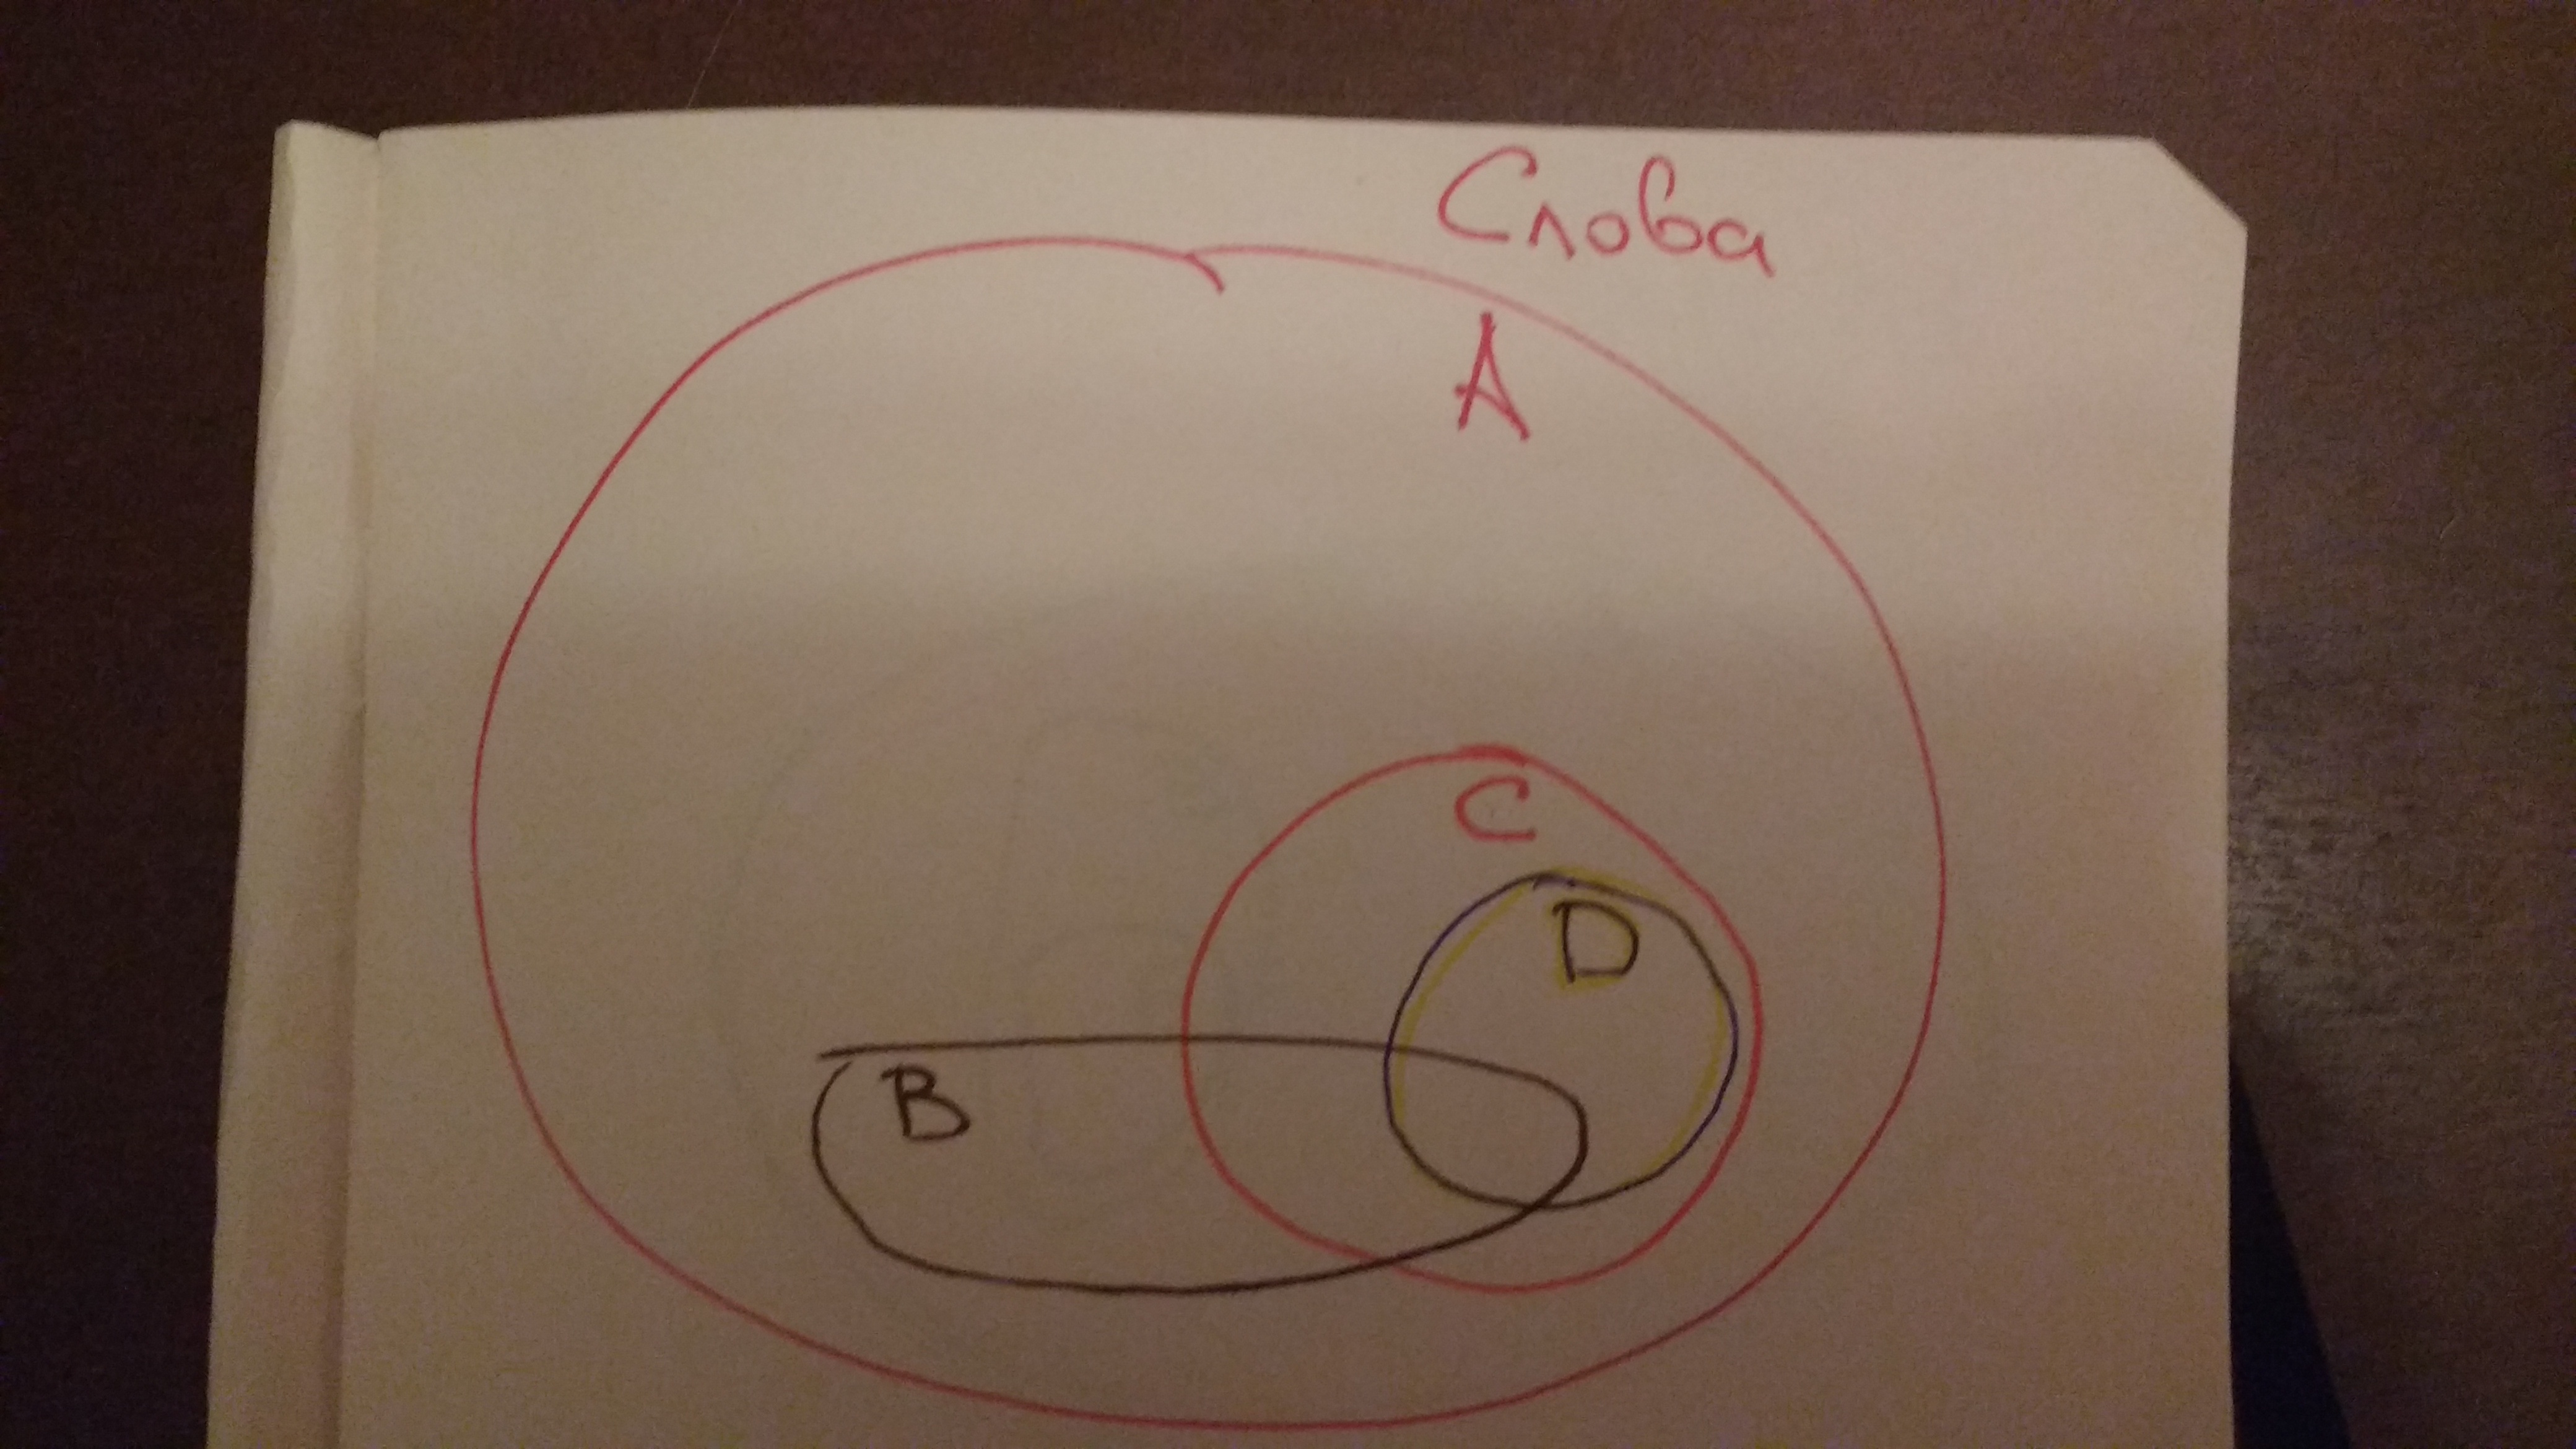 Слова
A
C
D
B